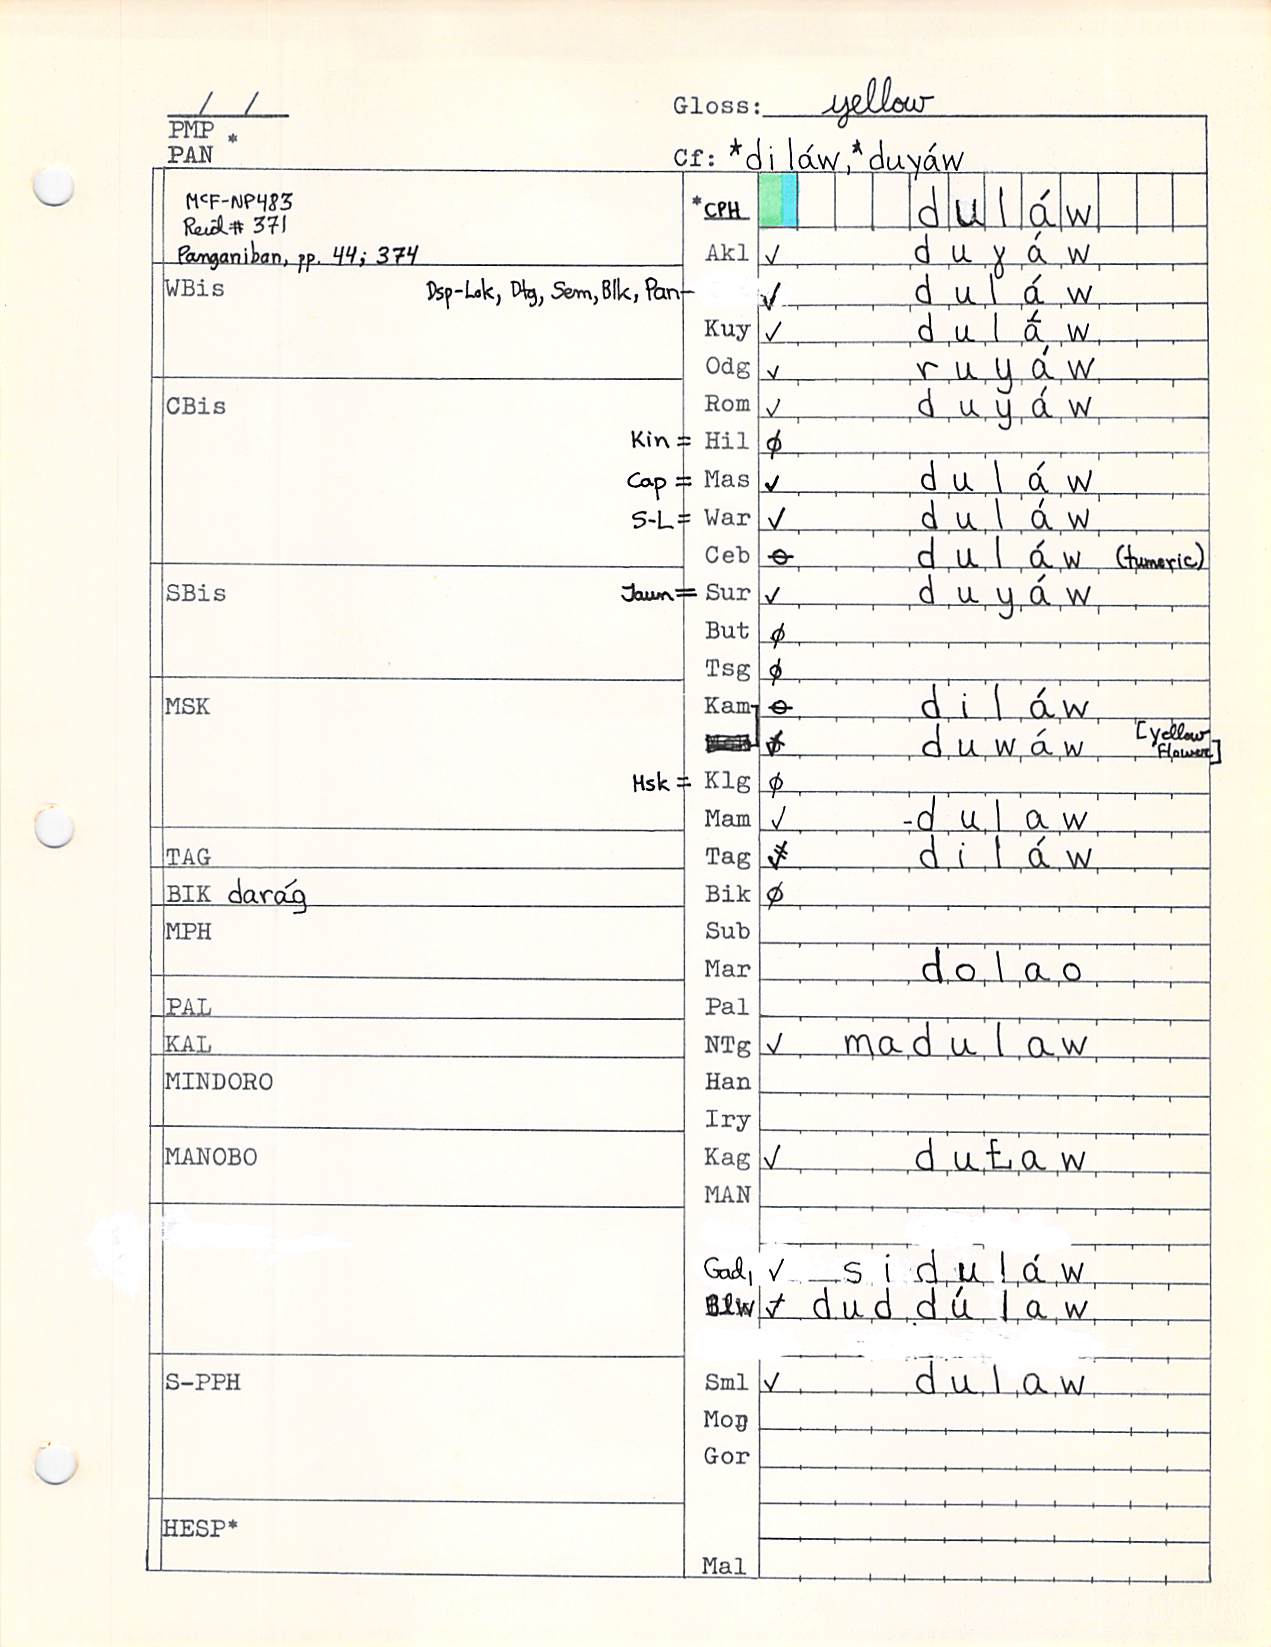 / /
Gloss: yellow
PMP *
PAN
Cf: *diláw, *duyáw
McF-NP483
Reid # 371
Panganiban, pp. 44; 374
*CPH duláw
Akl ✓ duɣáw
WBis Dsp-Lok, Dtg, Sem, Blk, Pan- ✓ duláw
Kuy ✓ duláw
Odg ✓ ruyáw
CBis Rom ✓ duyáw
Kin = Hil ∅
Cap = Mas ✓ duláw
S-L = War ✓ duláw
Ceb ⊖ duláw (tumeric)
SBis Jaun = Sur ✓ duyáw
But ∅
Tsg ∅
MSK Kam ⊖ diláw
duwáw [yellow flower]
Msk = Klg ∅
Mam ✓ -dulaw
TAG Tag diláw
BIK darág Bik ∅
MPH Sub
Mar dolao
PAL Pal
KAL NTg ✓ madulaw
MINDORO Han
Iry
MANOBO Kag ✓ duław
MAN
Gad, ✓ siduláw
Blw duddúlaw
S-PPH Sml ✓ dulaw
Moŋ
Gor
HESP*
Mal